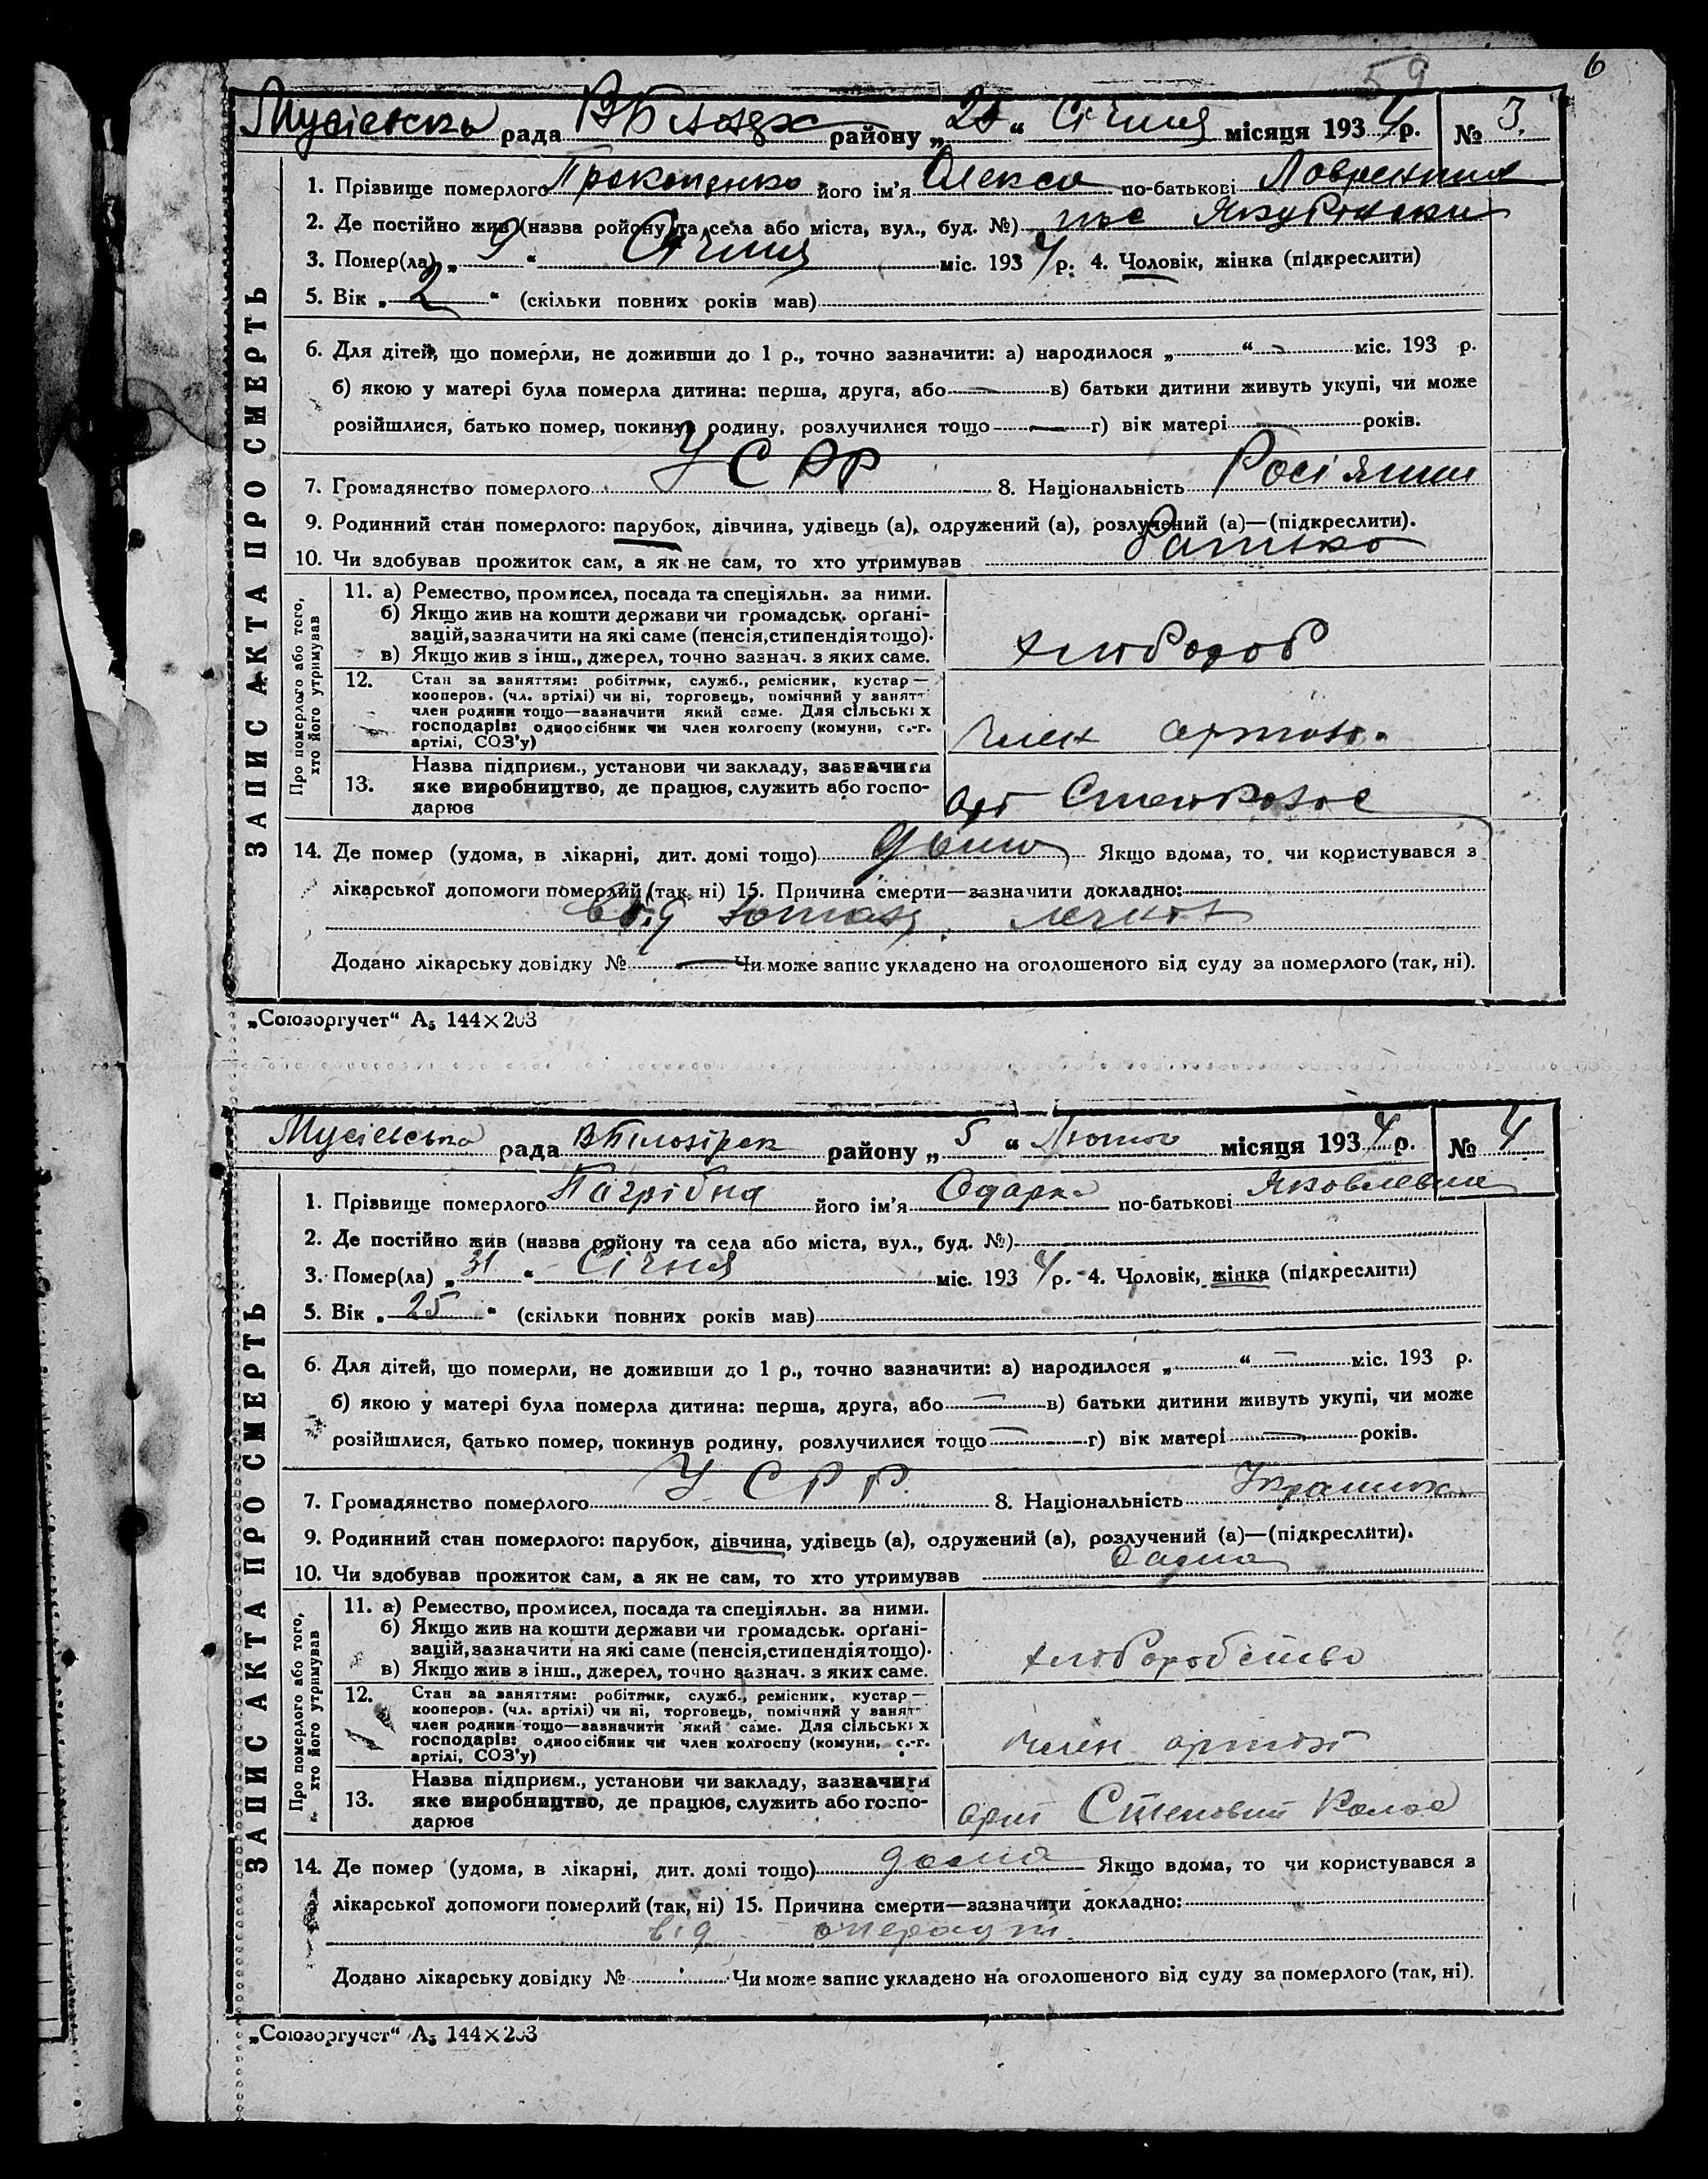 59
6
Мусієвська рада ВБілозерк району „25“ Січня місяця 1934 р. № 3.
1. Прізвище померлого Прокопенко його ім'я Олекса по-батькові
2. Де постійно жив (назва ройону та села або міста, вул., буд. №)
3. Помер(ла) „9“ Січня міс. 1934 р. 4. Чоловік, жінка (підкреслити)
5. Вік „2“ (скільки повних років мав)
6. Для дітей, що померли, не доживши до 1 р., точно зазначити: а) народилося „ “ міс. 193 р.
б) якою у матері була померла дитина: перша, друга, або — в) батьки дитини живуть укупі, чи може
розійшлися, батько помер, покинув родину, розлучилися тощо — г) вік матері — років.
7. Громадянство померлого УСРР 8. Національність Росіянин
9. Родинний стан померлого: парубок, дівчина, удівець (а), одружений (а), розлучений (а)—(підкреслити).
10. Чи здобував прожиток сам, а як не сам, то хто утримував Батько
ЗАПИС АКТА ПРО СМЕРТЬ
Про померлого або того, хто його утримував
11. а) Ремество, промисел, посада та спеціяльн. за ними.
б) Якщо жив на кошти держави чи громадськ. орґані-
зацій, зазначити на які саме (пенсія, стипендія тощо).
в) Якщо жив з інш., джерел, точно зазнач. з яких саме.
хлібороб
12. Стан за заняттям: робітник, служб., ремісник, кустар—
кооперов. (чл. артілі) чи ні, торговець, помічний у занятт
член родини тощо—зазначити який саме. Для сільськіх
господарів: одноосібник чи член колгоспу (комуни, с.-г.
артілі, СОЗ'у)
член артілі.
13. Назва підприєм., установи чи закладу, зазначити
яке виробництво, де працює, служить або госпо-
дарює
14. Де помер (удома, в лікарні, дит. домі тощо) дома Якщо вдома, то чи користувався з
лікарської допомоги померлий (так, ні) 15. Причина смерти—зазначити докладно:
від
Додано лікарську довідку № — Чи може запис укладено на оголошеного від суду за померлого (так, ні).
„Союзоргучет“ А5 144×203
Мусієвська рада ВБілозірск району „5“ Лютого місяця 1934 р. № 4
1. Прізвище померлого Пагрібна його ім'я Одарка по-батькові Яковлевна
2. Де постійно жив (назва ройону та села або міста, вул., буд. №)
3. Помер(ла) „31“ Січня міс. 1934 р. 4. Чоловік, жінка (підкреслити)
5. Вік „25“ (скільки повних років мав)
6. Для дітей, що померли, не доживши до 1 р., точно зазначити: а) народилося „ “ — міс. 193 р.
б) якою у матері була померла дитина: перша, друга, або — в) батьки дитини живуть укупі, чи може
розійшлися, батько помер, покинув родину, розлучилися тощо — г) вік матері — років.
7. Громадянство померлого УСРР. 8. Національність
9. Родинний стан померлого: парубок, дівчина, удівець (а), одружений (а), розлучений (а)—(підкреслити).
10. Чи здобував прожиток сам, а як не сам, то хто утримував
ЗАПИС АКТА ПРО СМЕРТЬ
Про померлого або того, хто його утримував
11. а) Ремество, промисел, посада та спеціяльн. за ними.
б) Якщо жив на кошти держави чи громадськ. орґані-
зацій, зазначити на які саме (пенсія, стипендія тощо).
в) Якщо жив з інш., джерел, точно зазнач. з яких саме.
хліборобство
12. Стан за заняттям: робітник, служб., ремісник, кустар—
кооперов. (чл. артілі) чи ні, торговець, помічний у занят
член родини тощо—зазначити який саме. Для сільськіх
господарів: одноосібник чи член колгоспу (комуни, с.-г.
артілі, СОЗ'у)
член артілі
13. Назва підприєм., установи чи закладу, зазначити
яке виробництво, де працює, служить або госпо-
дарює
арт Степовий Колос
14. Де помер (удома, в лікарні, дит. домі тощо) дома Якщо вдома, то чи користувався з
лікарської допомоги померлий (так, ні) 15. Причина смерти—зазначити докладно:
від операції.
Додано лікарську довідку № Чи може запис укладено на оголошеного від суду за померлого (так, ні).
„Союзоргучет“ А5 144×203